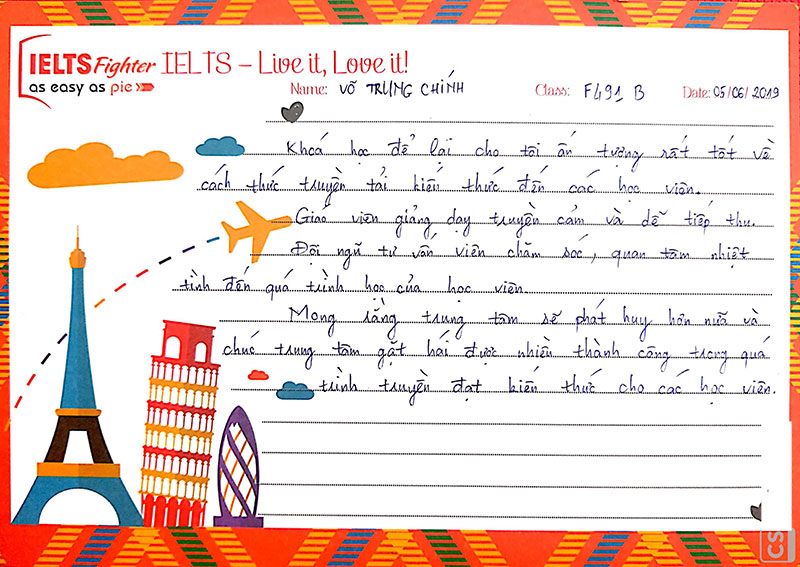 IELTS Fighter IELTS – Live it, Love it!
as easy as pie
Name: VÕ TRUNG CHÍNH Class: F491 B Date: 05/06/2019
Khoá học để lại cho tôi ấn tượng rất tốt về
cách thức truyền tải kiến thức đến các học viên.
Giáo viên giảng dạy truyền cảm và dễ tiếp thu.
Đội ngũ tư vấn viên chăm sóc, quan tâm nhiệt
tình đến quá trình học của học viên.
Mong rằng trung tâm sẽ phát huy hơn nữa và
chúc trung tâm gặt hái được nhiều thành công trong quá
trình truyền đạt kiến thức cho các học viên.
CS